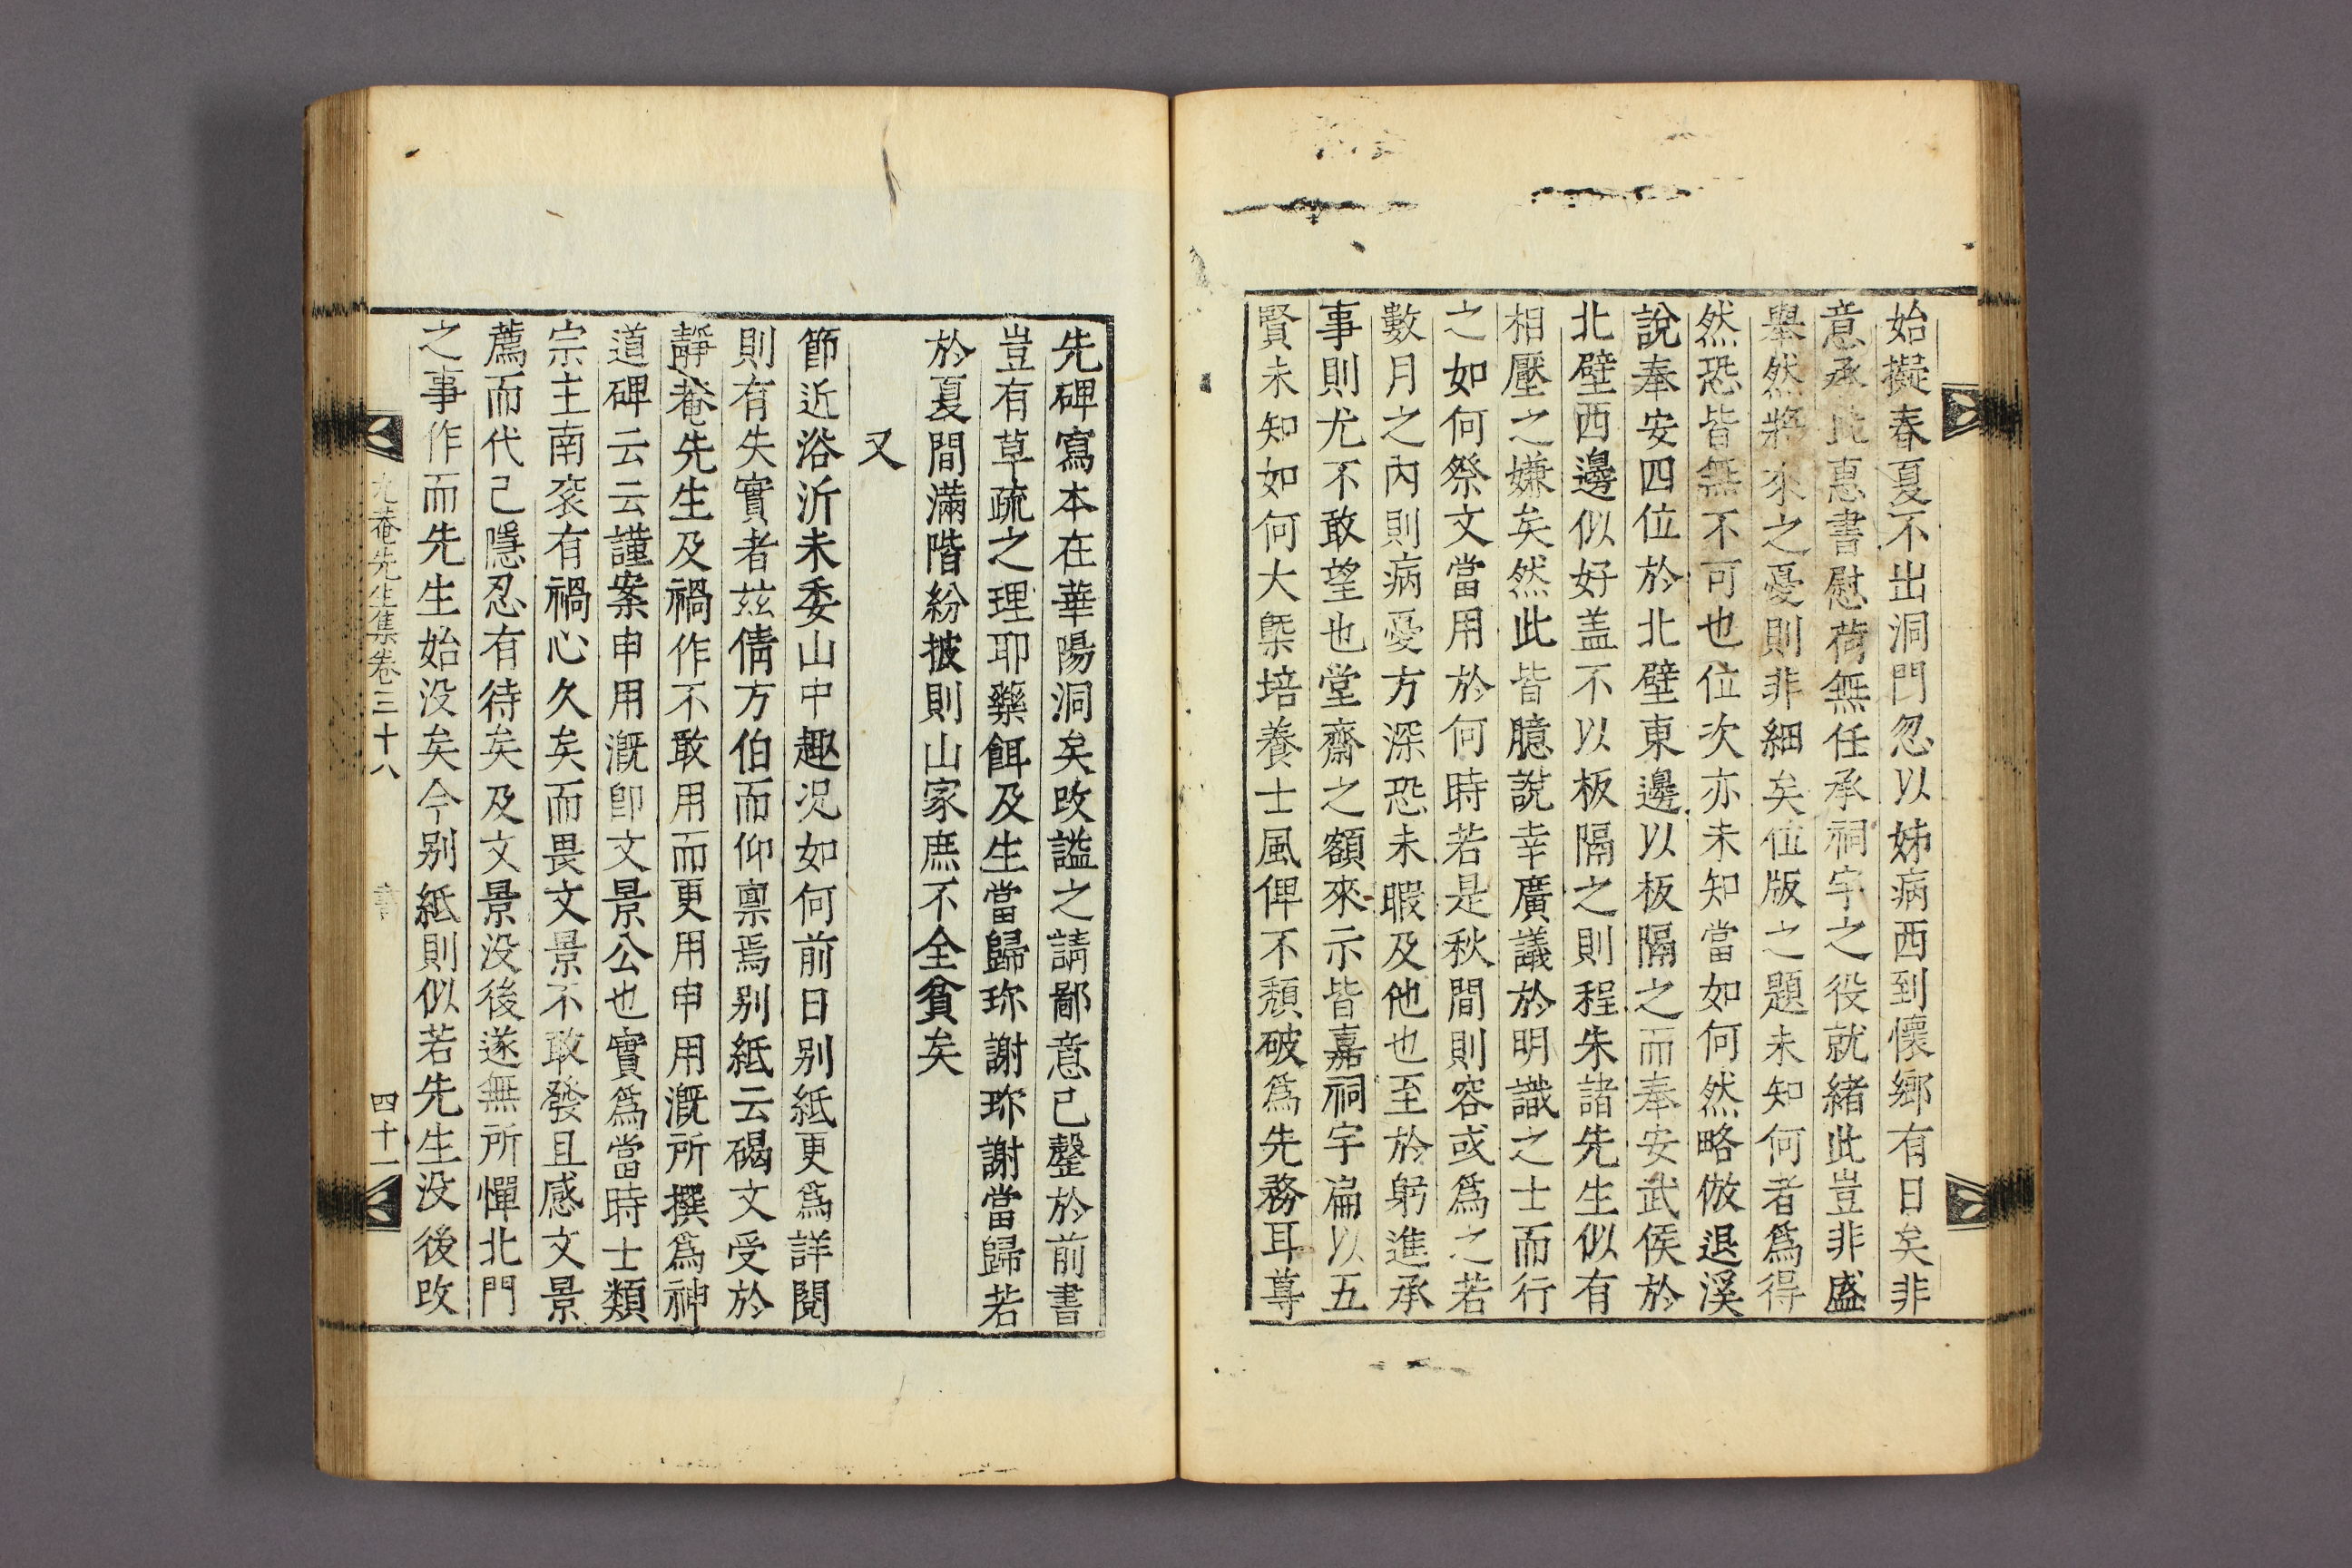 始擬春夏不出洞門忽以姊病西到懷鄉有日矣非
意承此惠書慰荷無任承祠宇之役就緒此豈非盛
擧然將來之憂則非細矣位版之題未知何者爲得
然恐皆無不可也位次亦未知當如何然略倣退溪
說奉安四位於北壁東邊以板隔之而奉安武侯於
北壁西邊似好盖不以板隔之則程朱諸先生似有
相壓之嫌矣然此皆臆說幸廣議於明識之士而行
之如何祭文當用於何時若是秋間則容或爲之若
數月之內則病憂方深恐未暇及他也至於躬進承
事則尤不敢望也堂齋之額來示皆嘉祠宇扁以五
賢未知如何大槩培養士風俾不頹破爲先務耳尊
先碑寫本在華陽洞矣改謚之請鄙意已罄於前書
豈有草疏之理耶藥餌及生當歸珎謝珎謝當歸若
於夏間滿階紛披則山家庶不全貧矣
又
節近浴沂未委山中趣況如何前日別紙更爲詳閱
則有失實者玆倩方伯而仰禀焉別紙云碣文受於
靜菴先生及禍作不敢用而更用申用漑所撰爲神
道碑云云謹案申用漑卽文景公也實爲當時士類
宗主南袞有禍心久矣而畏文景不敢發且感文景
薦而代己隱忍有待矣及文景没後遂無所憚北門
之事作而先生始没矣今別紙則似若先生没後改
尤菴先生集卷三十八
書
四十一